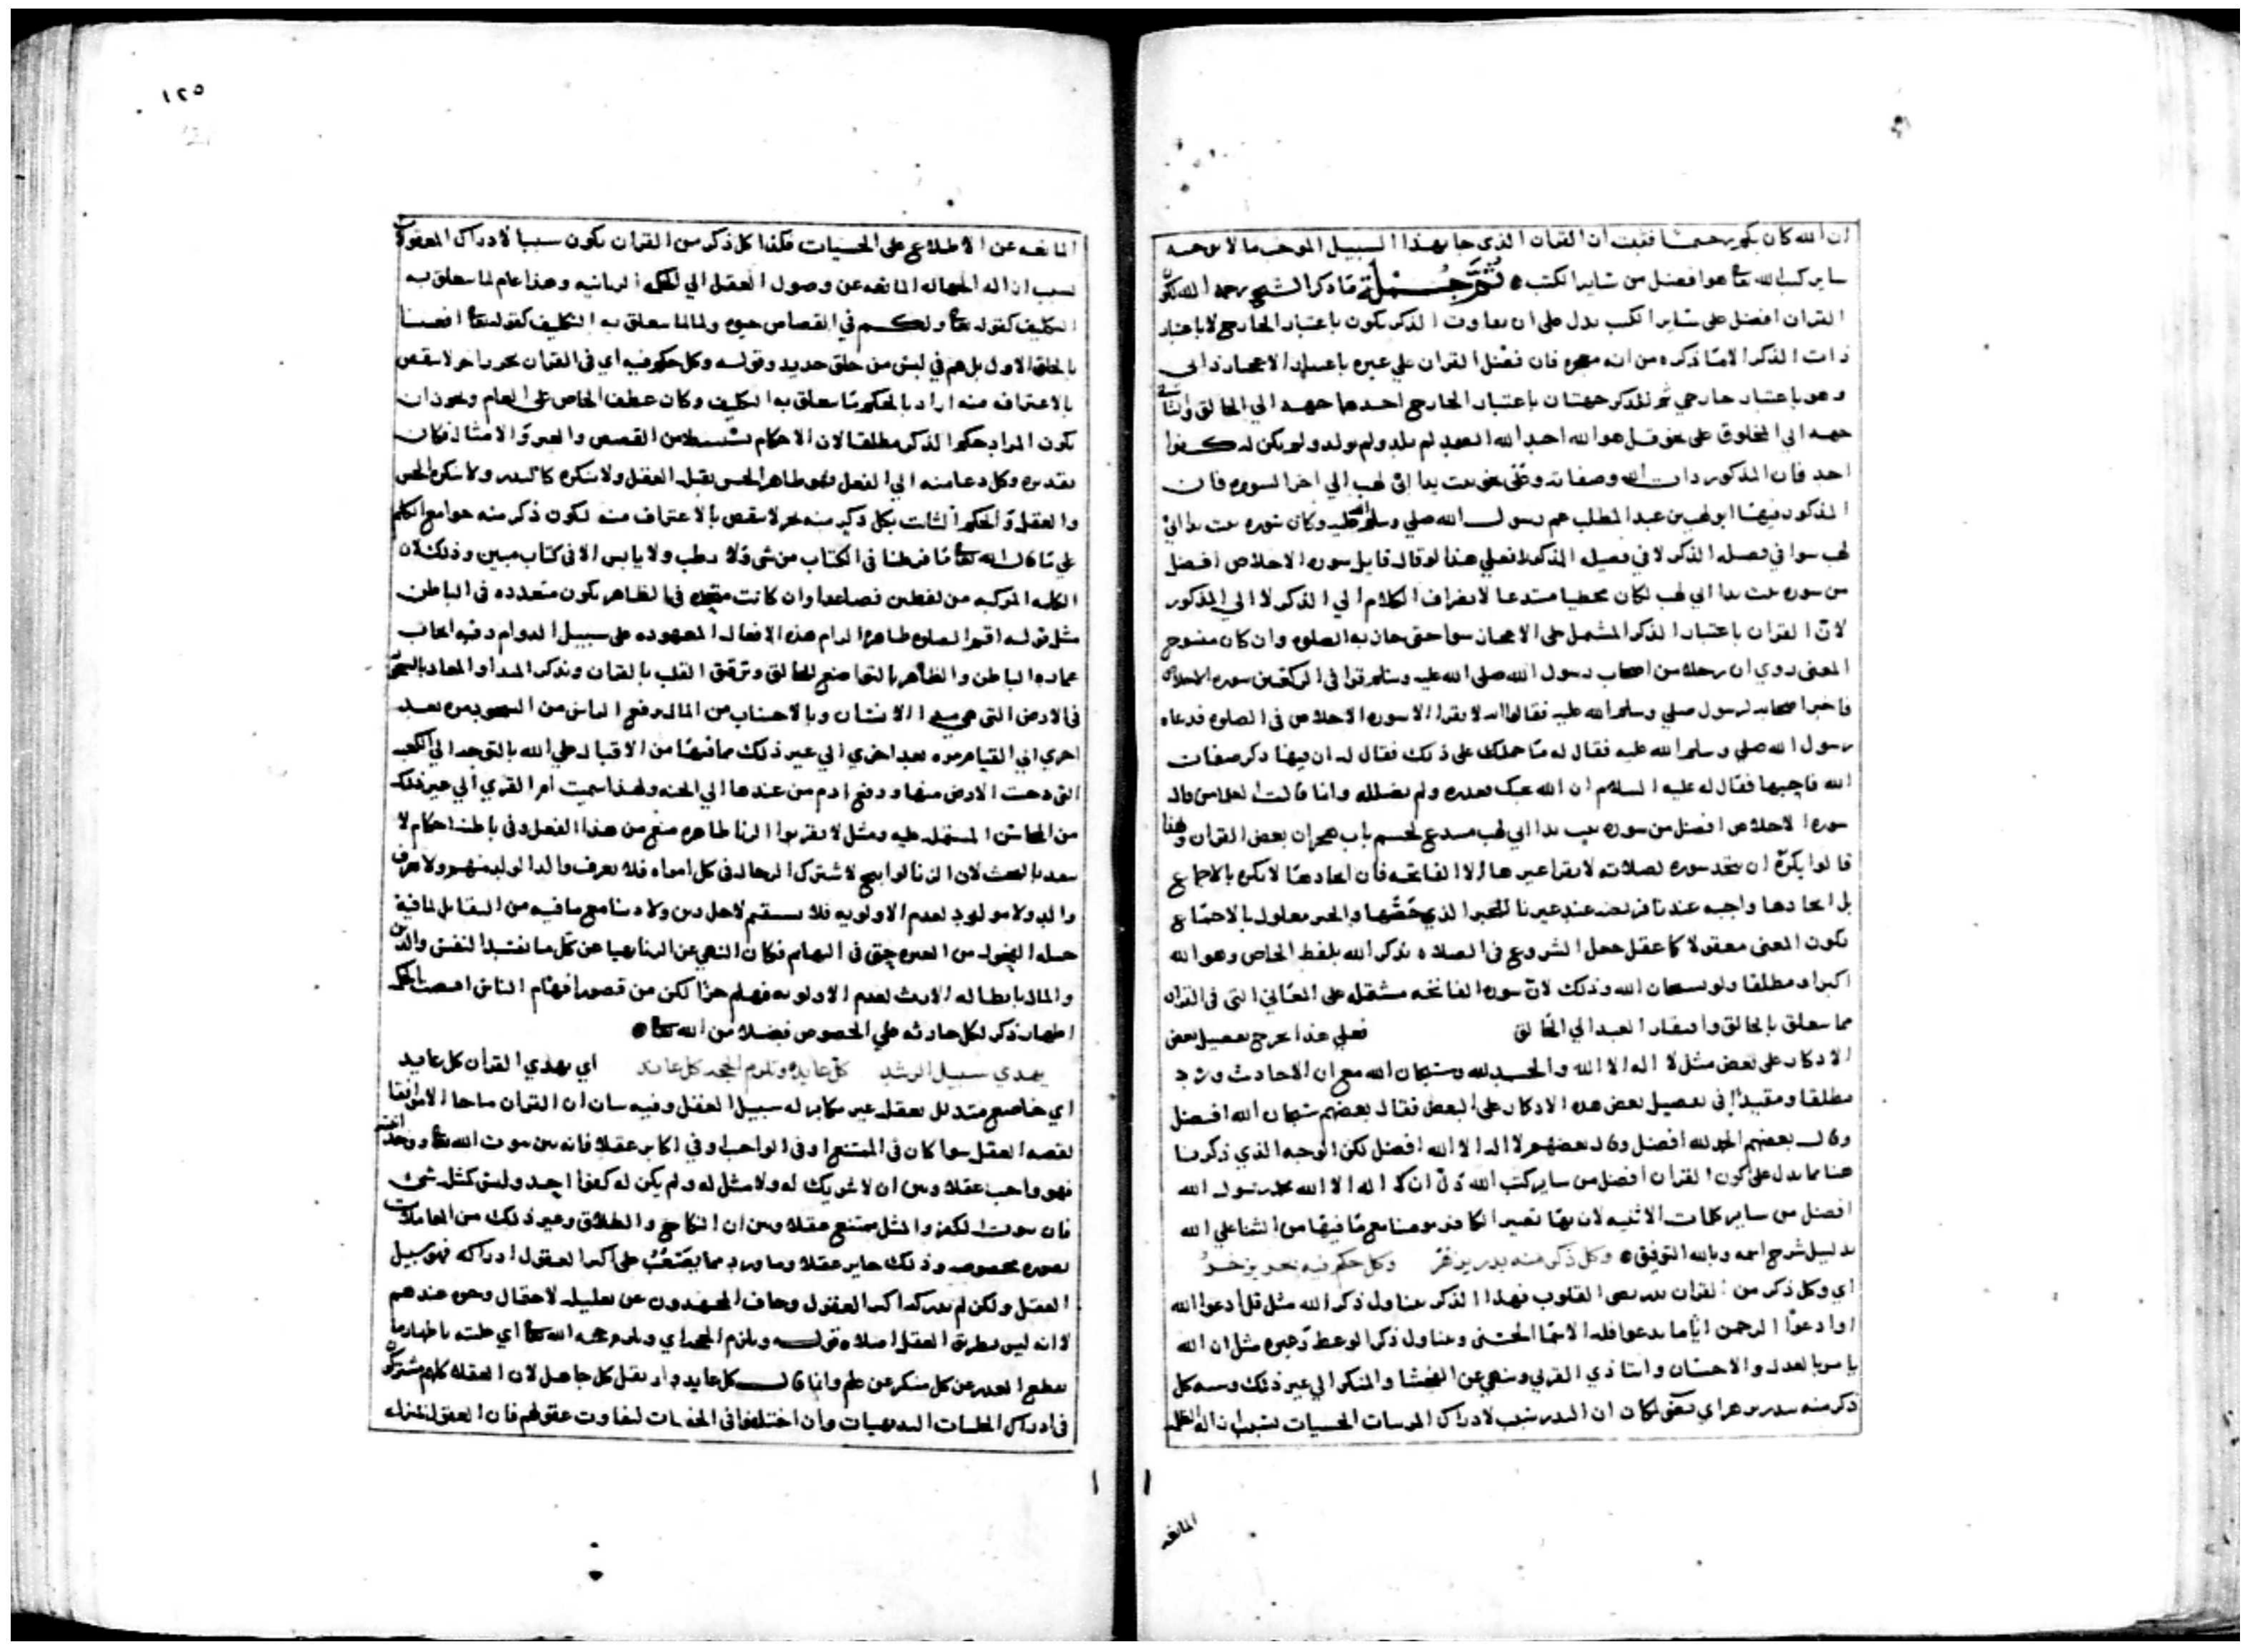 ان الله كان بكم رحيما فثبت ان القران الذي جا بهذا السبيل الموجب ما لا يوجبه
ساير كتب الله تعا هو افضل من ساير الكتب ثم جملة ما ذكر الشيخ رحمه الله
القران افضل على ساير الكتب يدل على ان تفاوت الذكر يكون باعتبار الخارج لا باعتبار
ذات الذكر الا ما ذكره من انه معجزه فان فضل القران على غيره باعتبار الاعجاز ذاتي
وهو باعتبار خارجي ثم للذكر جهتان باعتبار الخارج احدهما جهه الي الخالق والثانيه
جهه الي المخلوق على نحو قل هو الله احد الله الصمد لم يلد ولم يولد ولم يكن له كفوا
احد فان المذكور ذات الله وصفاته وعلى نحو تبت يدا ابى لهب الي اخر السوره فان
المذكور فيها ابو لهب بن عبد المطلب عم رسول الله صلي وسلم عليه وكان سوره تبت يدا ابي
لهب سوا في فضل الذكر لا في فضيله المذكور فعلي هذا لو قال قايل سوره الاخلاص افضل
من سوره تبت يدا ابي لهب لكان مخطيا مبتدعا لانصراف الكلام الي الذكر لا الي المذكور
لان القران باعتبار الذكر المشتمل على الاعجاز سوا حتى جاز به الصلوه وان كان منسوخ
المعنى روي ان رجلا من اصحاب رسول الله صلى الله عليه وسلم قرا في الركعتين سوره الاخلاص
فاخبر اصحابه لرسول صلي وسلم الله عليه فقالوا انه لا يقرا الا سوره الاخلاص في الصلوه فدعاه
رسول الله صلي وسلم الله عليه فقال له ما حملك على ذلك فقال له ان فيها ذكر صفات
الله فاحبها فقال له عليه السلام ان الله يحبك ولم يضلله وانا قالت العلما من قال
سوره الاخلاص افضل من سوره تبت يدا ابي لهب مبتدع لحسم باب هجران بعض القران ولهذا
قالوا يكره ان يتخذ سوره لصلاته لا يقرا غيرها الا الفاتحه فان اتخاذها لا يكره بالاجماع
بل اتخاذها واجبه عندنا فريضه عند غيرنا للخبر الذي خصها والخبر معلول بالاجماع
بكون المعنى معقولا كما عقل جعل الشروع في الصلاه بذكر الله بلفظ الخاص وهو الله
اكبر او مطلقا ولو بسبحان الله وذلك لان سوره الفاتحه مشتمله على المعاني التي في القران
مما يتعلق بالخالق وافتقار العبد الي الخالق فعلي هذا يخرج تفضيل بعض
الاذكار على بعض مثل لا اله الا الله والحمد لله وسبحان الله مع ان الاحاديث ورد
مطلقا ومقيدا في تفضيل بعض هذه الاذكار على البعض فقال بعضهم سبحان الله افضل
وقال بعضهم الحمد لله افضل وقال بعضهم لا اله الا الله افضل لكن الوجه الذي ذكرنا
هنا مما يدل على كون القران افضل من ساير كتب الله دل ان لا اله الا الله محمد رسول الله
افضل من ساير كلمات الاثنيه لان بها تصير الكافر مومنا مع ما فيها من الثنا علي الله
بدليل شرح اسمه وبالله التوفيق وكل ذكر منه بدر يزهر وكل حكم فيه بحر يزخر
اي وكل ذكر من القران بدر يضي القلوب فهذا الذكر يتناول ذكر الله مثل قل ادعوا الله
او ادعوا الرحمن ايا ما تدعوا فله الاسما الحسنى ويتناول ذكر الوعظ وغيره مثل ان الله
يامر بالعدل والاحسان وايتا ذي القربى وينهي عن الفحشا والمنكر الي غير ذلك وشبه كل
ذكر منه ببدر يزهر اي يضي لكان ان البدر سبب لادراك المرييات الحسيات بسبب ازاله الظلمه
المانعه
١٢٥
المانعه عن الاطلاع على الحسيات فكذا كل ذكر من القران يكون سببا لادراك المعقولات
بسبب ازاله الجهاله المانعه عن وصول العقل الي الحكم الربانيه وهذا عام لما يتعلق به
التكليف كقوله تعا ولكم في القصاص حيوه ولما لا يتعلق به التكليف كقوله تعا افعيينا
بالخلق الاول بل هم في لبس من خلق جديد وقوله وكل حكم فيه اي في القران بحر زاخر لا ينقص
بالاعتراف منه اراد بالحكم ما يتعلق به التكليف وكان عطف الخاص على العام ويجوز ان
يكون المراد بحكم الذكر مطلقا لان الاحكام تستنبط من القصص والعبر والامثال فكان
تقديره وكل دعا منه الي الفعل فهو ظاهر الحسن يقبله العقل ولا ينكره كالبدر ولا ينكره الحس
والعقل والحكم الثابت بكل ذكر منه بحر لا ينقص بالاغتراف منه لكون ذكر منه جوامع الكلم
علي ما قال الله تعا ما فرطنا في الكتاب من شي ولا رطب ولا يابس الا في كتاب مبين وذلك لان
الكلمه المركبه من لفظين فصاعدا وان كانت متحده في الظاهر يكون متعدده في الباطن
مثل قوله اقم الصلوه ظاهره الزام هذه الافعال المعهوده على سبيل الدوام وفيه ايجاب
عماره الباطن والظاهر بالتواضع للخالق وترقيق القلب بالقران وتذكر المبدا والمعاد بالسجود
في الارض التي هي مبدا الانسان وبالاجتناب من المال برفع الراس من السجود مره بعد
اخري الي القيام مره بعد اخري الي غير ذلك مما فيها من الاقبال على الله بالتوجه الي الكعبه
التي دحت الارض منها ورفع ادم من عندها الي الجنه ولهذا سميت ام القري الي غير ذلك
من المحاسن المشتمله عليه ومثل لا تقربوا الزنا ظاهره منع من هذا الفعل وفي باطنه احكام لا
يعد بالبحث لان الزنا لو ابيح لاشترك الرجال في كل امراه فلا يعرف والد الولد منهم ولا يعرف
والد ولا مولود لعدم الاولويه فلا يستقيم لاحد دين ولا دنيا مع ما فيه من التقابل لما فيه
حمله الفحول من الغيره حتى في البهايم فكان النهي عن الزنا نهيا عن كل ما يفسد النفس والدين
والمال بابطاله الارث لعدم الاولويه فهلم جرا لكن من قصور افهام الناس اقتضت الحكمه
اظهار ذكر لكل حادثه علي الخصوص فضلا من الله تعا
يهدي سبيل الرشد كل عابد ويلزم الحجه كل عاند اي يهدي القران كل عابد
اي خاضع متذلل بعقله غير مكابر له سبيل العقل وفيه بيان ان القران ما جا الا موافقا
لقصه العقل سوا كان في الممتنع او في الواجب او في اكابر عقلا فانه بين ثبوت الله تعا ووحدانيته
فهو واجب عقلا وبين ان لا شريك له ولا مثل له ولم يكن له كفوا احد وليس كمثله شي
فان ثبوت الكفو والمثل ممتنع عقلا وبين ان النكاح والطلاق وغير ذلك من المعاملات
بصوره مخصوصه وذلك جايز عقلا وما ورد مما يصعب على اكثر العقول ادراكه فهو سبيل
العقل ولكن لم يدركه اكثر العقول وخاف المجتهدون عن تعليله لاحتمال وجوه عندهم
لا انه ليس بطريق العقل اصلا وقوله ويلزم الحجه اي ويلزم حجه الله تعا اي حجته باظهار ما
يقطع العذر عن كل منكر عن علم وانا قال كل عابد ولم يقل كل جاهل لان العقلا كلهم مشتركون
في ادراك الجليات البديهيات وان اختلفوا في الخفيات لتفاوت عقولهم فان العقول بمنزله